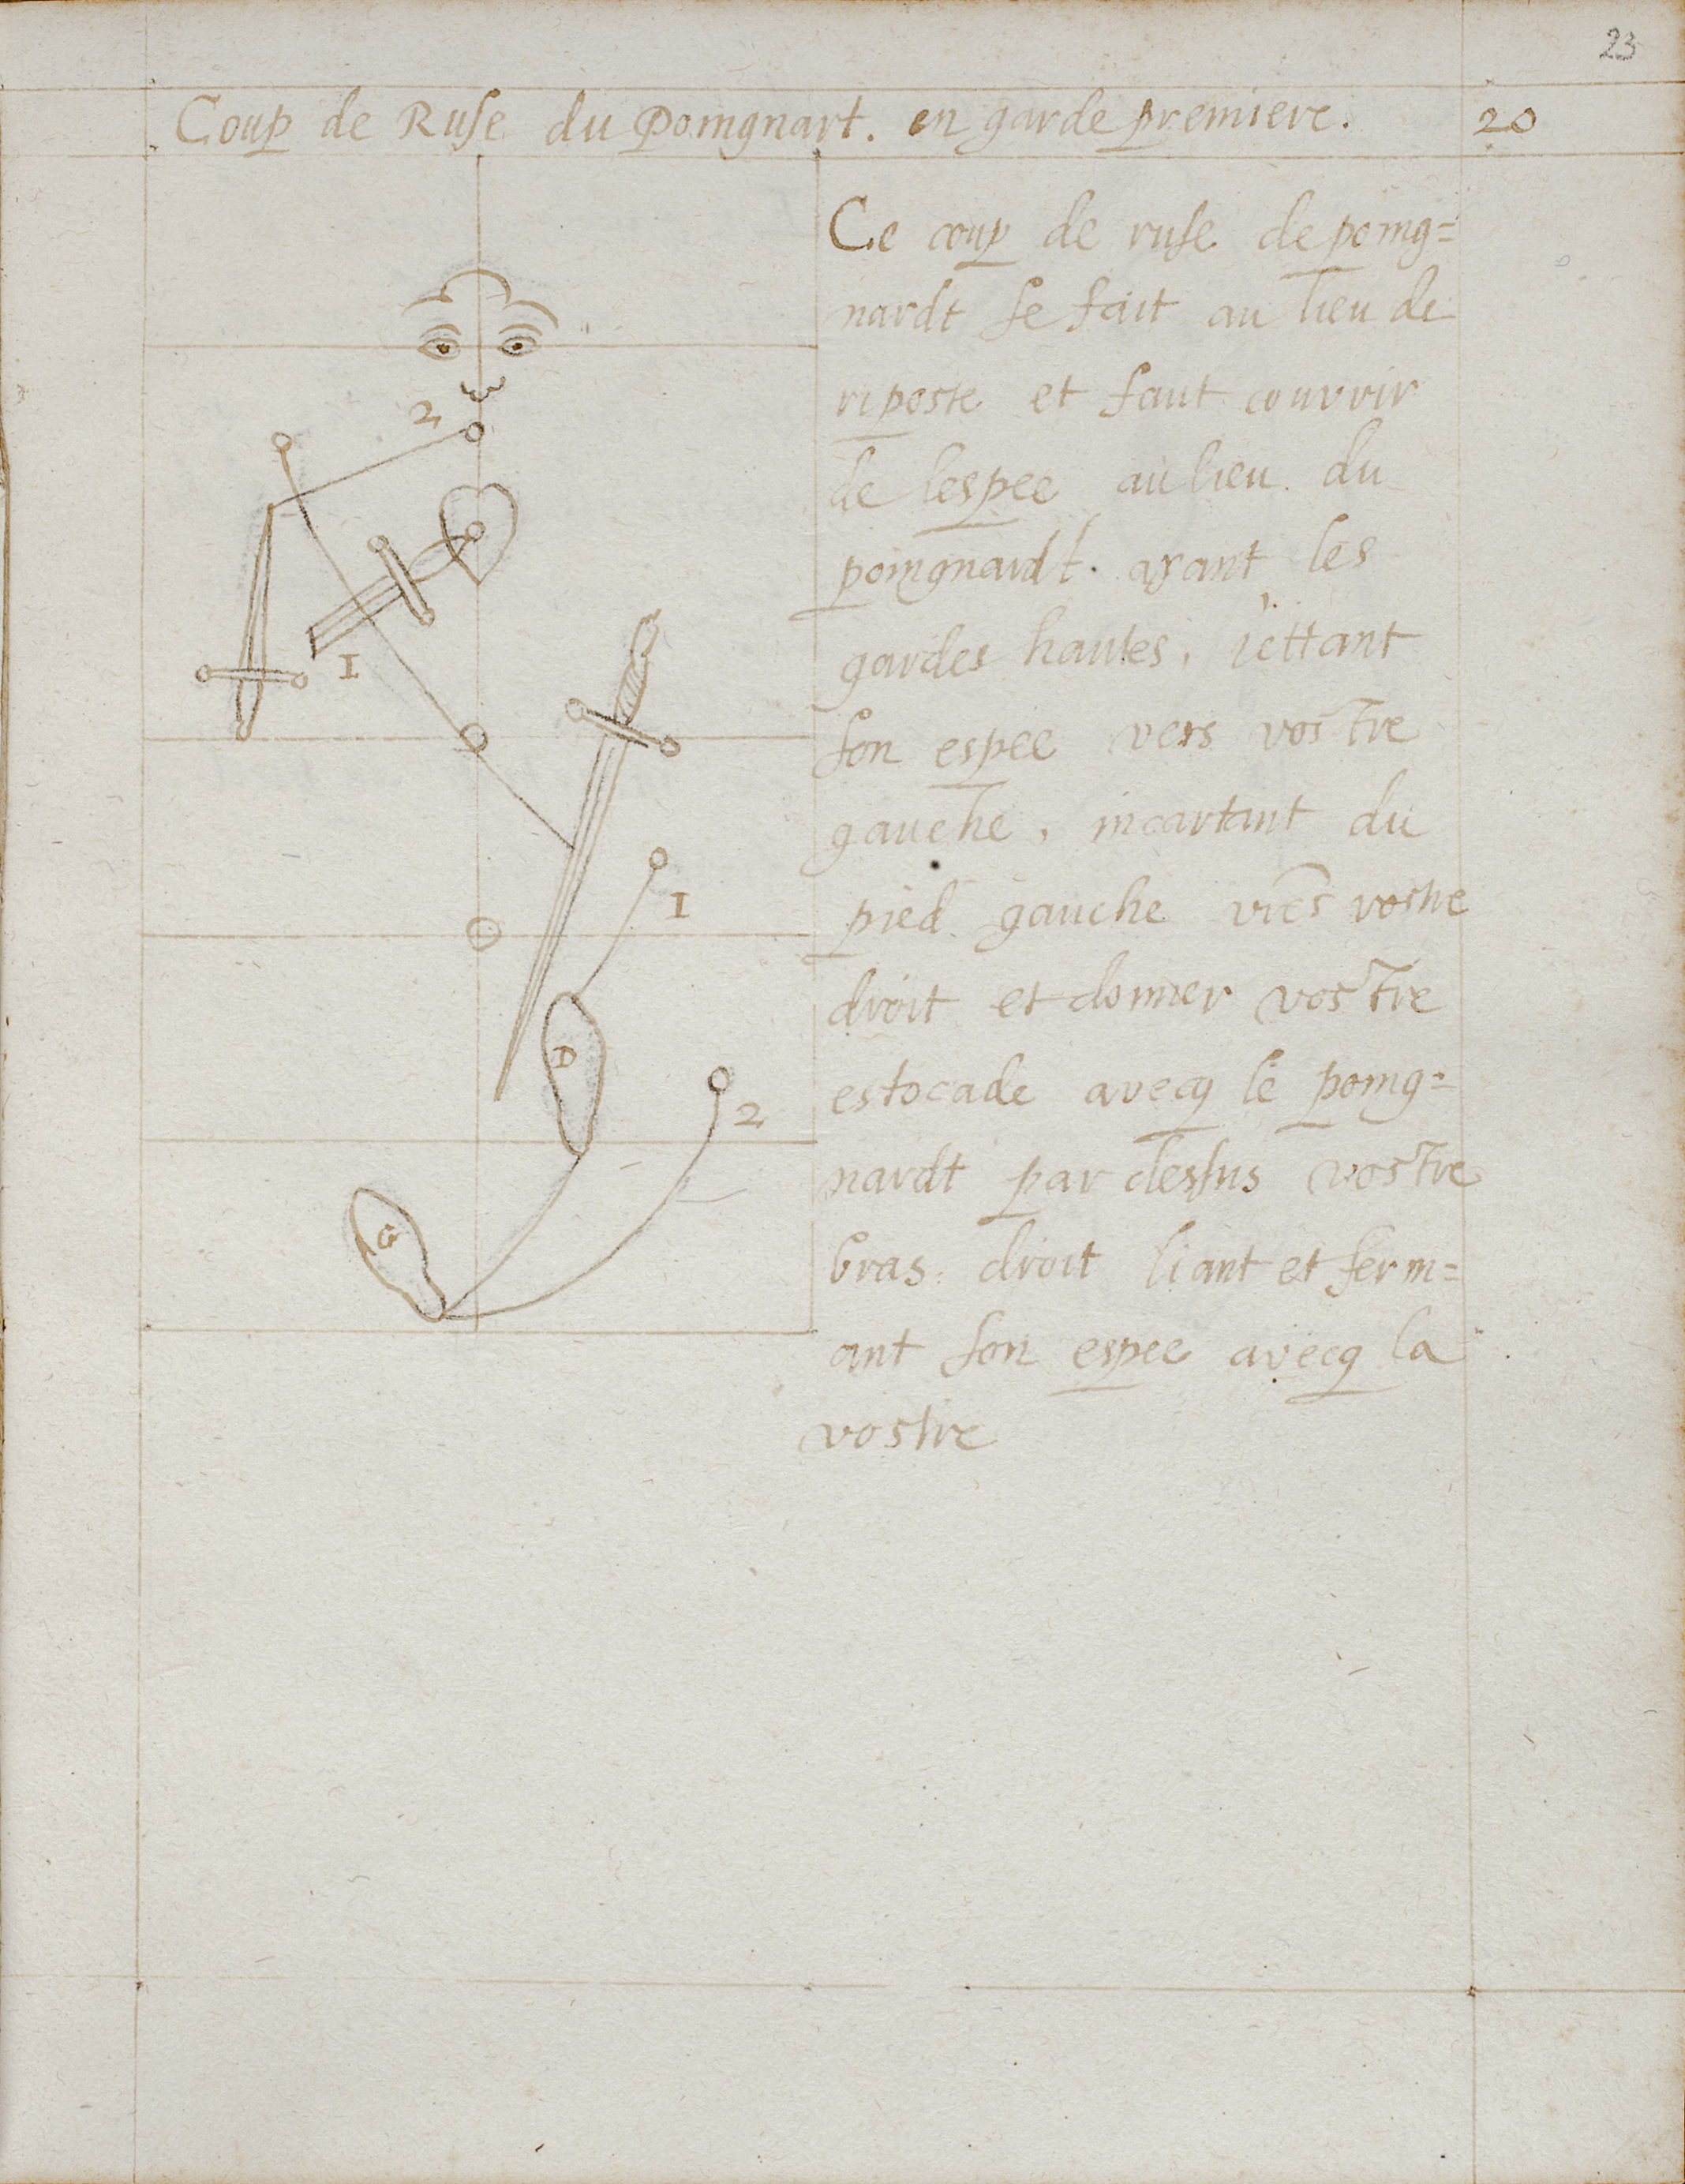 23
Coup de Ruse du Poingnart. en garde premiere. 20
Ce coup de ruse de poing=
nardt se fait au lieu de
riposte et faut couvrir
de lespee au lieu du
poingnardt. ayant les
gardes hautes, iettant
son espee vers vostre
gauche, incartant du
pied gauche viers vostre
droit et donner vostre
estocade avecq le poing=
nardt par dessus vostre
bras droit liant et ferm=
ant son espee avecq la
vostre
2
I
I
D
2
G